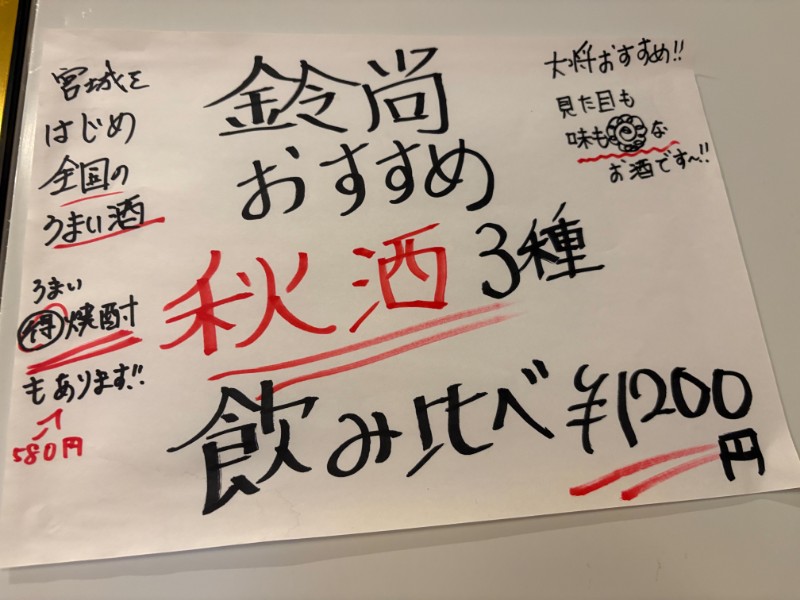 宮城を
はじめ
全国の
うまい酒
うまい
得焼酎
もあります!!
580円
鈴尚
おすすめ
秋酒3種
飲み比べ¥1200
円
大将おすすめ!!
見た目も
味も◎な
お酒です〜!!